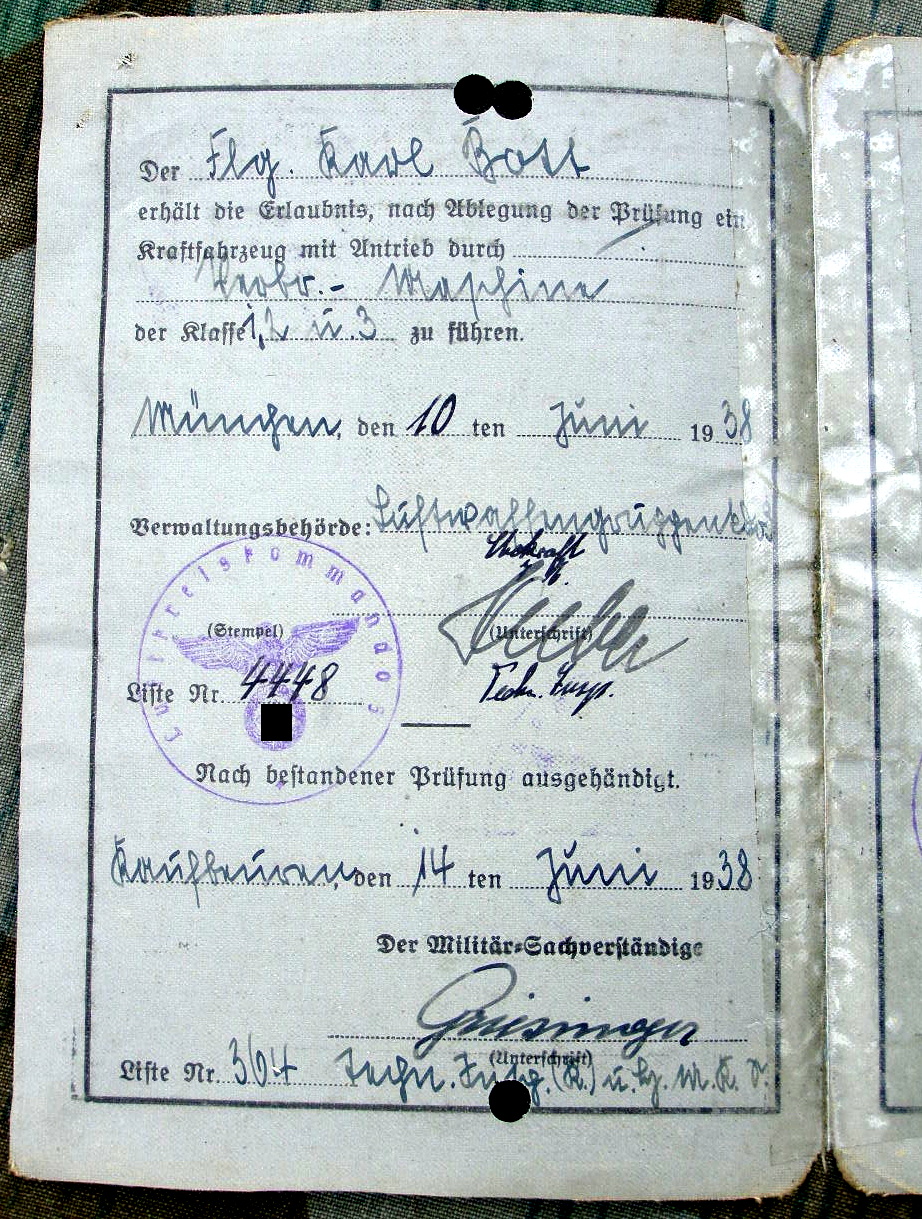 Der Flg. Karl Bott
erhält die Erlaubnis, nach Ablegung der Prüfung ein
Kraftfahrzeug mit Antrieb durch
Verbr.- Maschine
der Klasse 1, 2 u. 3 zu führen.
München, den 10 ten Juni 1938
Verwaltungsbehörde:
Luftkreiskommandos
(Stempel) (Unterschrift)
Liste Nr. 4448 Techn. Insp.
Nach bestandener Prüfung ausgehändigt.
Kaufbeuren, den 14 ten Juni 1938
Der Militär-Sachverständige
(Unterschrift)
Liste Nr. 364 Techn. Insp. (K.) u.